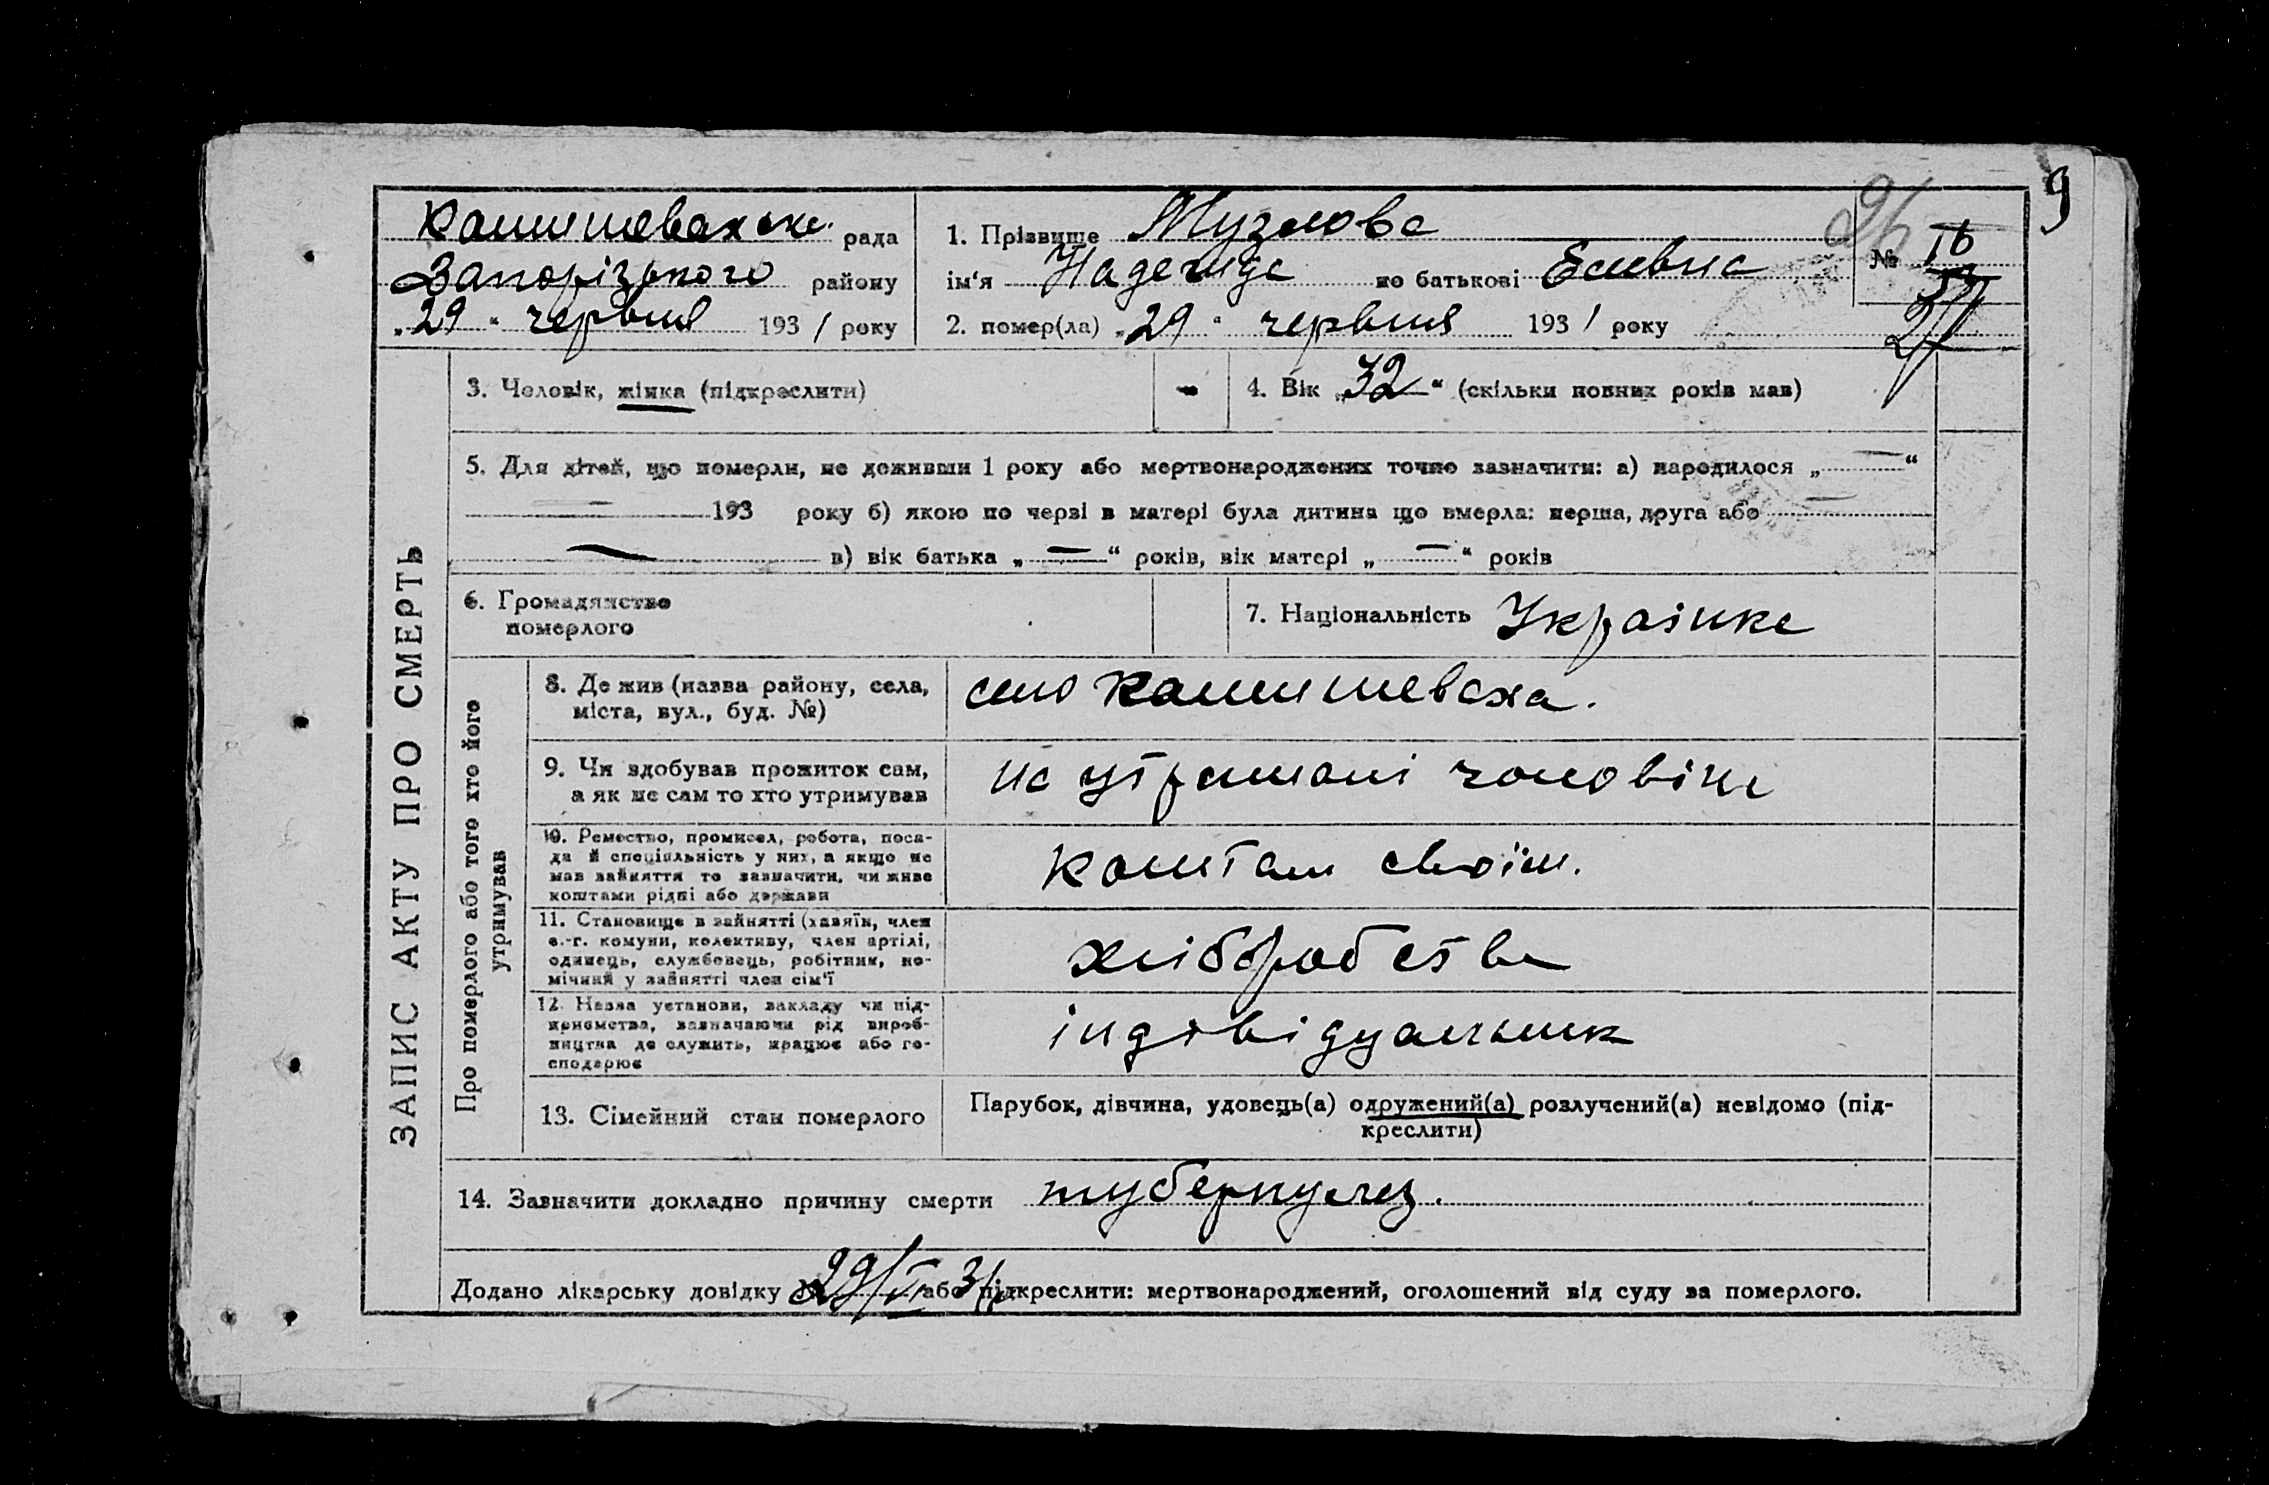 9
Комишеваська рада
Запорізького району
„29“ червня 1931 року
1. Прізвище Музлова
ім‘я Надежда по батькові
№ 16
2. помер(ла) „29“ червня 1931 року
3. Чоловік, жінка (підкреслити)
4. Вік „32“ (скільки повних років мав)
5. Для дітей, що померли, не доживши 1 року або мертвонароджених точно зазначити: а) народилося „ — “
— 193 року б) якою по черзі в матері була дитина що вмерла: перша, друга або —
— в) вік батька „ — “ років, вік матері „ — “ років
6. Громадянство
померлого
7. Національність Українка
ЗАПИС АКТУ ПРО СМЕРТЬ
Про померлого або того хто його
утримував
8. Де жив (назва району, села,
міста, вул., буд. №)
село Комишеваха.
9. Чи здобував прожиток сам,
а як не сам то хто утримував
на утримані чоловіка
10. Ремество, промисел, робота, поса-
да й спеціяльність у них, а якщо не
мав зайняття то зазначити, чи живе
коштами рідні або держави
коштам своїм.
11. Становище в зайнятті (хазяїн, член
с.-г. комуни, колективу, член артілі,
одинець, службовець, робітник, по-
мічний у зайнятті член сім‘ї
хліборобства
12. Назва установи, закладу чи під-
приємства, зазначаючи рід вироб-
ництва де служить, працює або го-
сподарює
індивідуальник
13. Сімейний стан померлого
Парубок, дівчина, удовець(а) одружений(а) розлучений(а) невідомо (під-
креслити)
14. Зазначити докладно причину смерти туберкульоз.
Додано лікарську довідку 29/VI 31 або підкреслити: мертвонароджений, оголошений від суду за померлого.